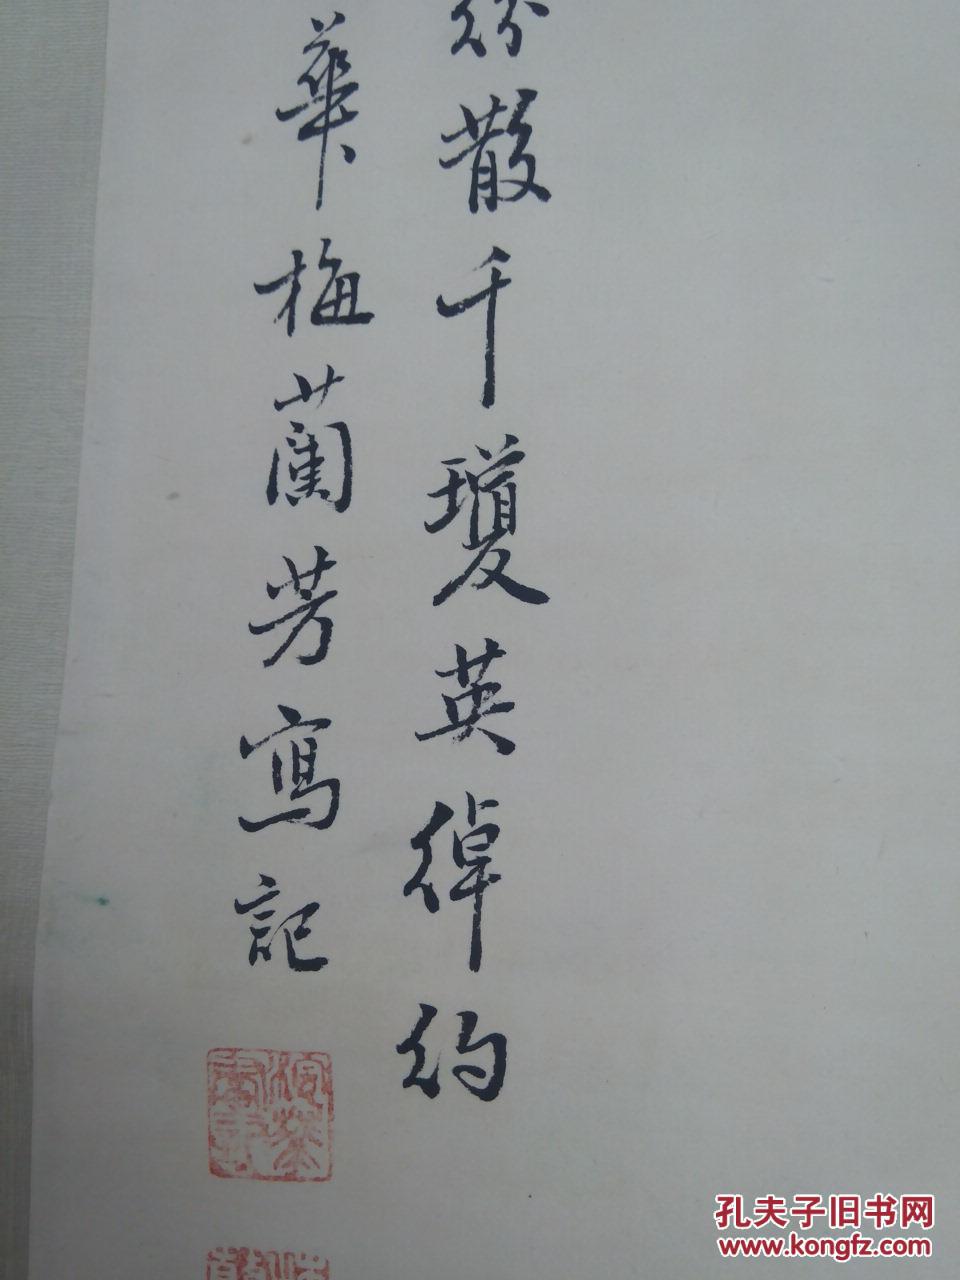 紛散千瓊英綽約
華梅蘭芳寫記
孔夫子旧书网
www.kongfz.com